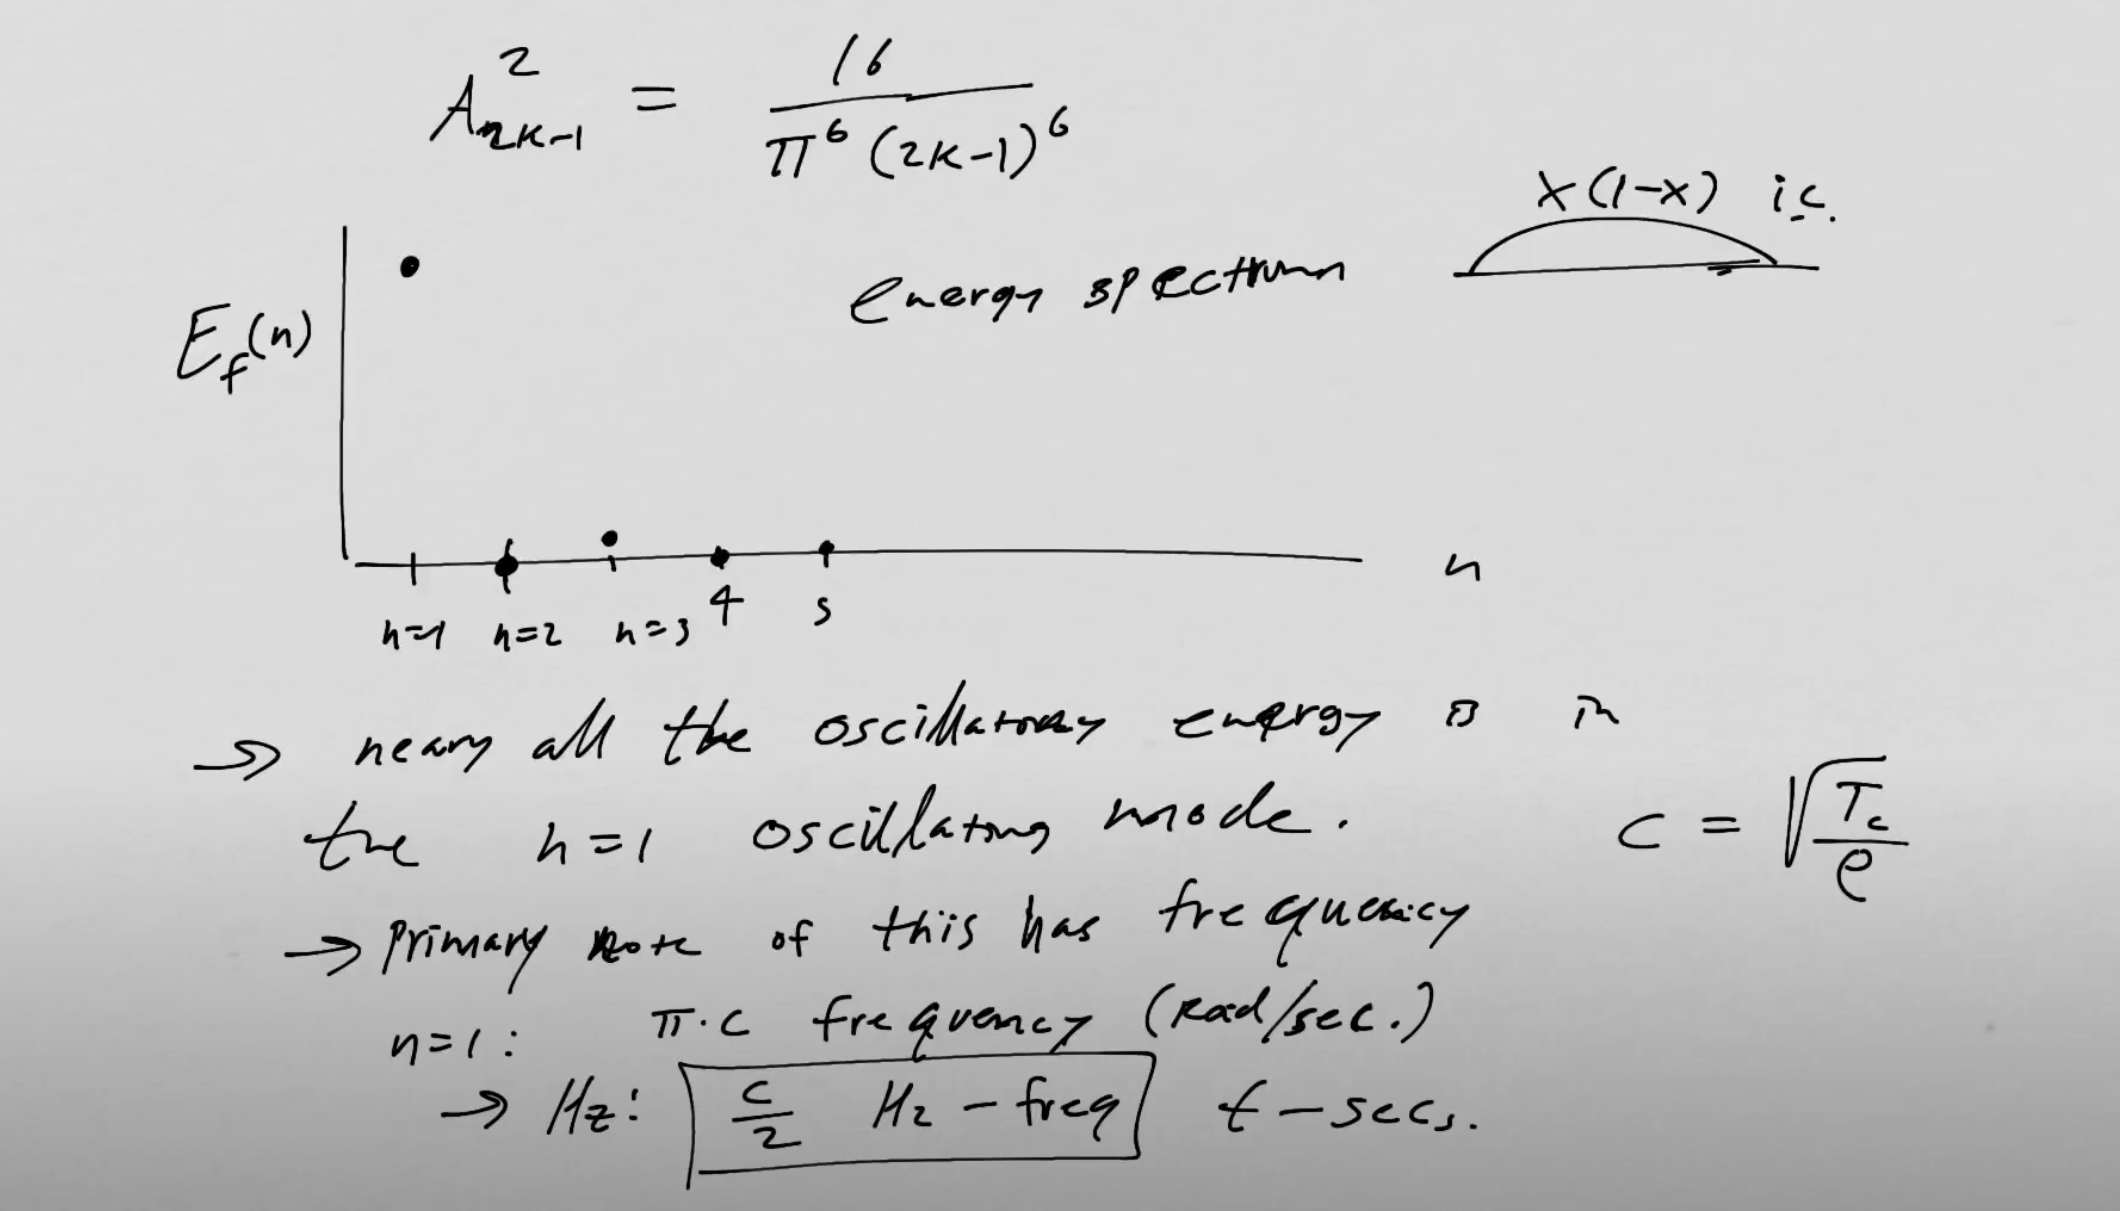 A²₂ₖ₋₁ = 16 / π⁶ (2k-1)⁶
x(1-x) i.c.
energy spectrum
E_f(n)
n
n=1 n=2 n=3 4 5
→ nearly all the oscillatory energy is in
the n=1 oscillating mode.
c = √(T_c / ρ)
→ Primary note of this has frequency
n=1: π·c frequency (Rad/sec.)
→ Hz: c/2 Hz - freq t - secs.